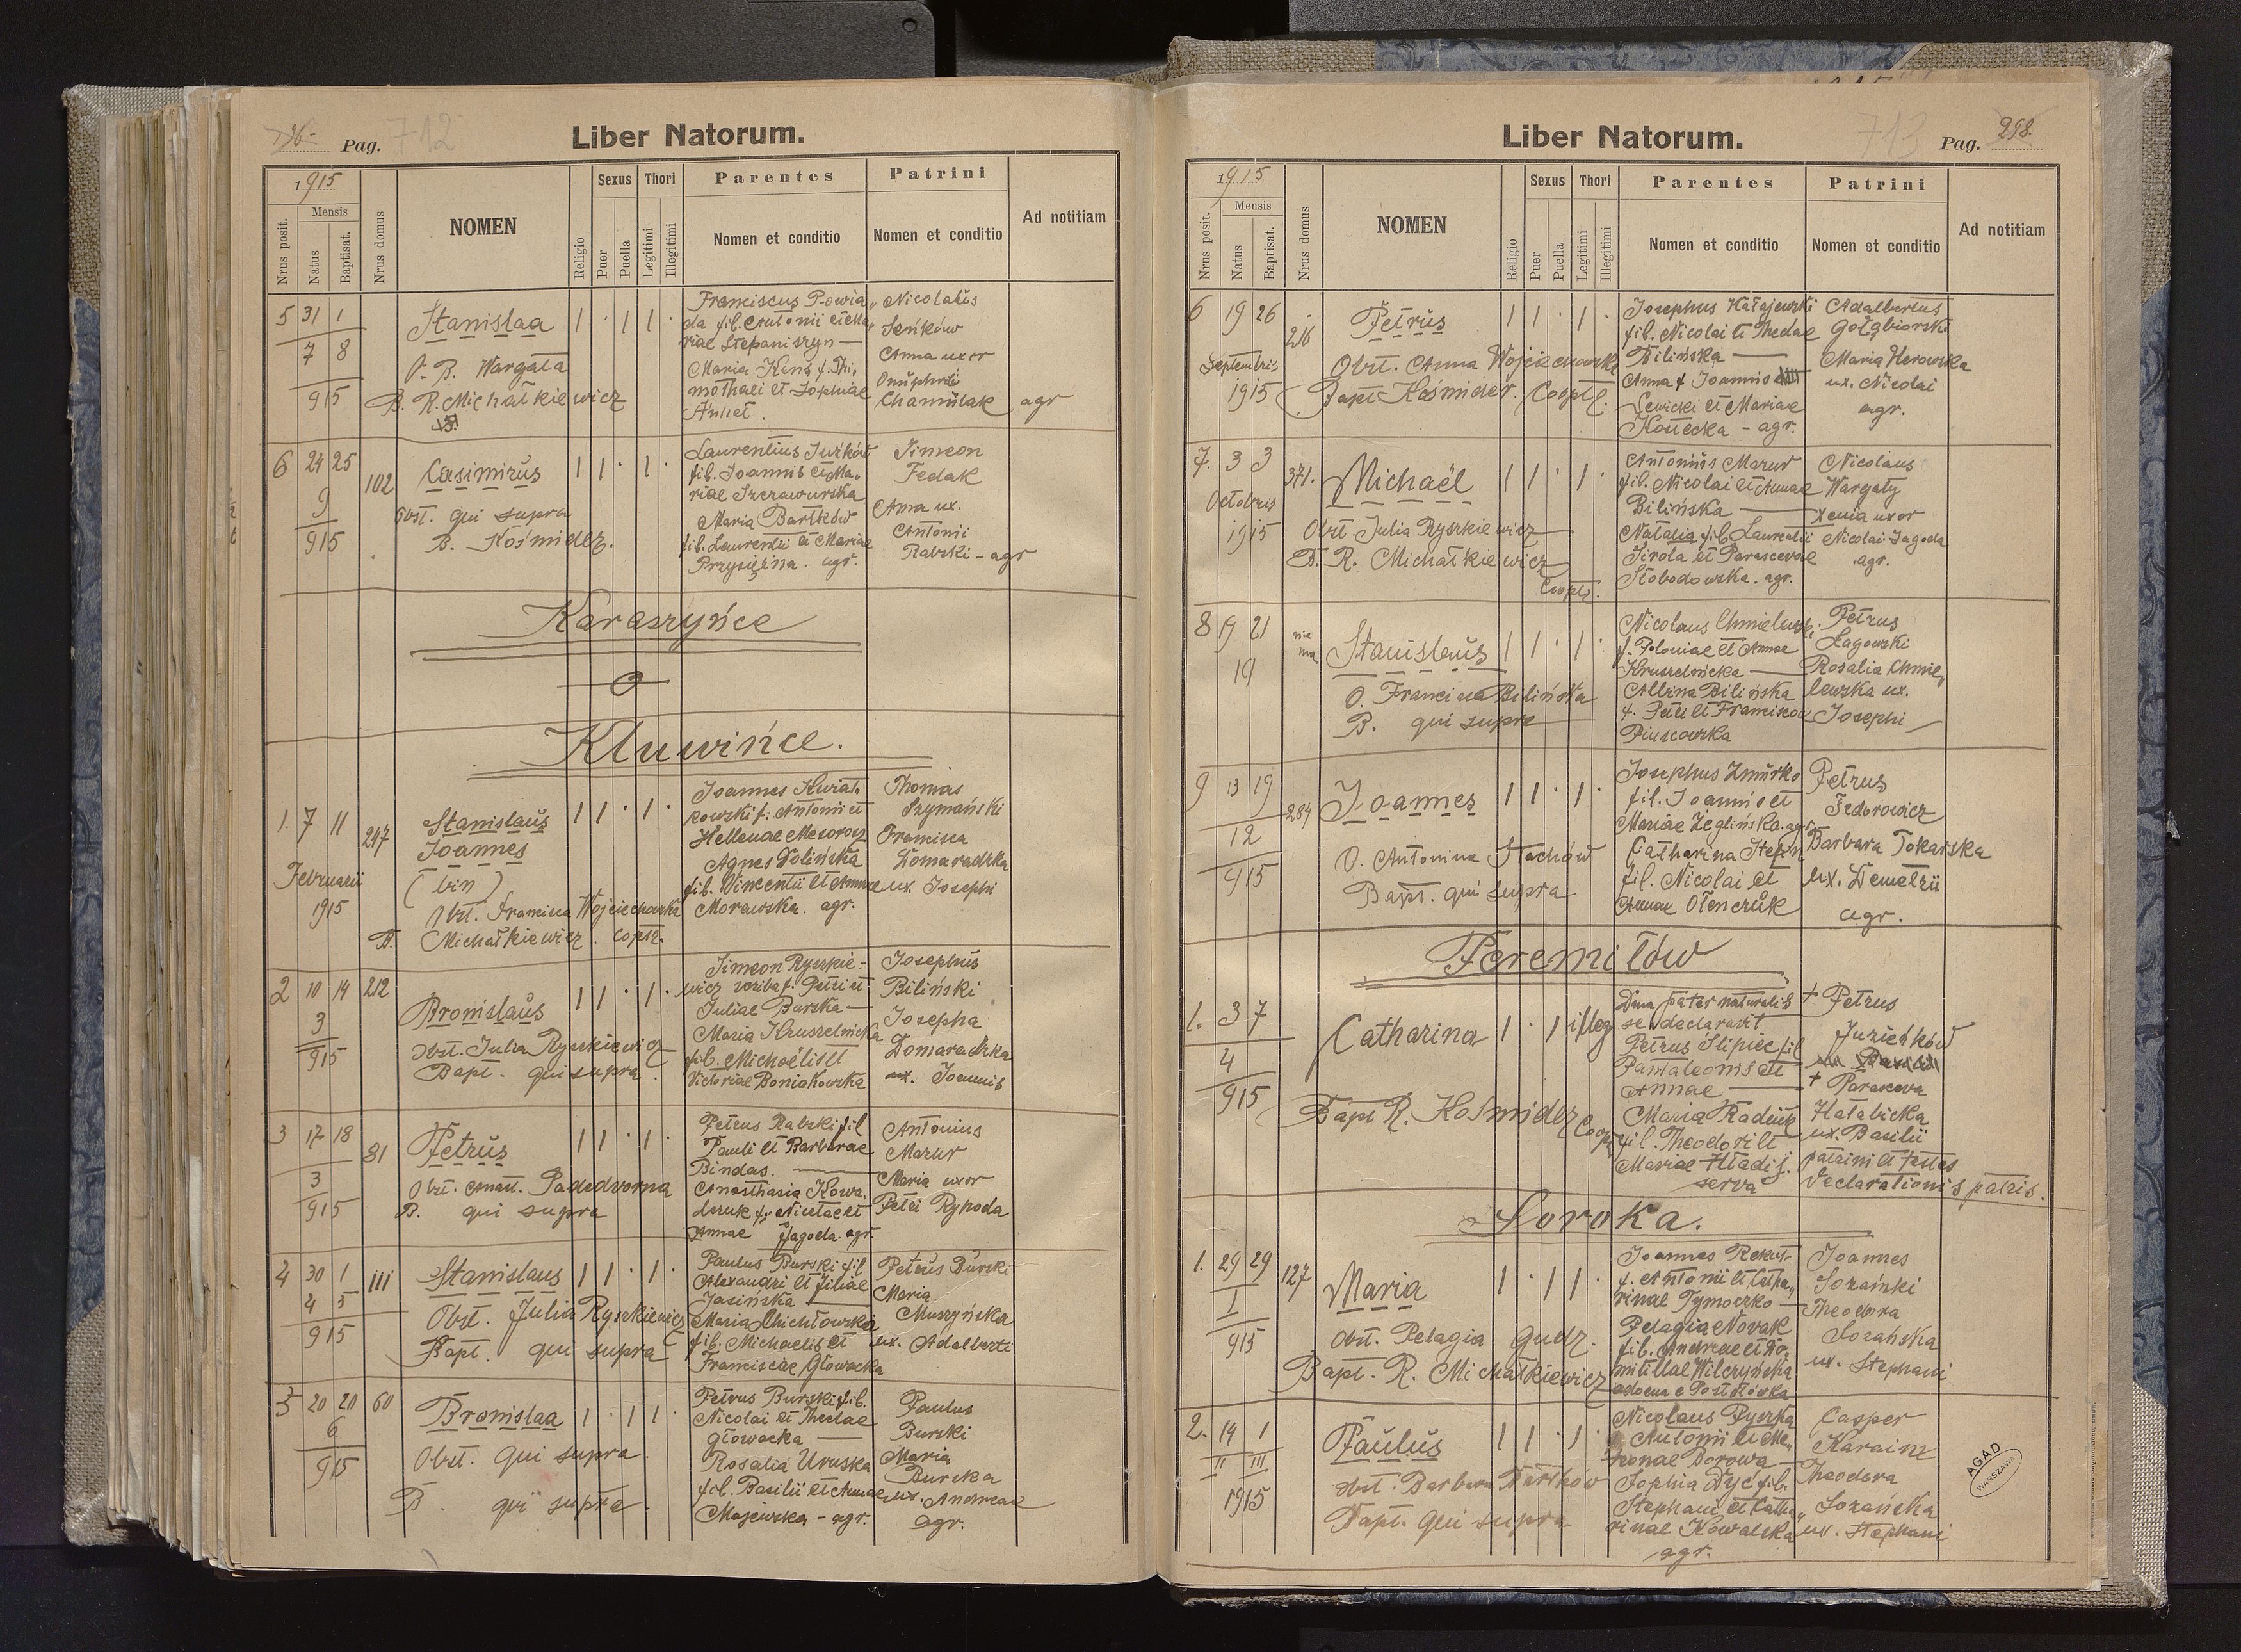 Pag. 712
Liber Natorum.
1915
Nrus posit.
Mensis
Natus
Baptisat.
Nrus domus
NOMEN
Religio
Sexus
Puer
Puella
Thori
Legitimi
Illegitimi
Parentes
Nomen et conditio
Patrini
Nomen et conditio
Ad notitiam
5 31 1
7 8
915
Stanislaa
O. B. Wargata
B. R. Michałkiewicz
Franciscus Powia„
da fil. Antonii et Ma„
riae Stepaniszyn
Maria
mothaei et Sophiae
Nicolaus
Seńków
Anna uxor
Onuphrii
Chamulak agr
6 24 25 102
9
915
Casimirus
Obst. qui supra
B. Kośmider.
Laurentius Juźków
fil. Joannis et Ma„
riae Szczawurska
Maria Bartków
fil. Laurentii et Mariae
Przysiężna. agr.
Simeon
Fedak
Anna ux.
Antonii
Rabski - agr
Karaszyńce
0
Kluwińce.
1. 7 11 247
Februarii
1915
Stanislaus
Joannes
(bin)
Obst. Francisca Wojciechowska
B. Michałkiewicz. Coptr.
Joannes Kwiat„
kowski f. Antonii et
Hellenae
Agnes Dolińska
fil. Vincentii et Annae
Morawska. agr.
Thomas
Szymański
Francisca
Domaradzka
ux. Josephi
2 10 14 212
3
915
Bronislaus
Obst. Julia Ryszkiewicz
Bapt. qui supra.
Simeon Ryszkie=
wicz scriba f. Petri et
Juliae Burska
Maria Kruszelnicka
fil. Michaëlis et
Victoriae Boniakowska
Josephus
Biliński
Josepha
Domaradzka
ux. Joannis
3 17 18 81
3
915
Petrus
Obst. Anast. Padedvorna
B. qui supra
Petrus Rabski fil
Pauli et Barbarae
Bindas.
Anasthasia Kowa„
Annae Jagoda. agr.
Antonius
Mazur
Maria uxor
Petri Ryhoda
4 30 1 111
4 5
915
Stanislaus
Obst. Julia Ryszkiewicz
Bapt. qui supra
Paulus Burski fil
Alexandri et Juliae
Jasińska
Maria Michtowska
fil. Michaelis et
Franciscae Głowacka
Petrus Burski
Maria
Muszyńska
ux. Adalberti
5 20 20 60
6
915
Bronislaa
Obst. qui supra.
B. qui supra.
Petrus Burski fil.
Nicolai et Theclae
Głowacka
Rosalia Uruska
fil. Basilii et Annae
Majewska - agr.
Paulus
Burski
Maria
Burska
ux. Andreae
agr.
Liber Natorum.
713 Pag. 298.
1915
Nrus posit.
Mensis
Natus
Baptisat.
Nrus domus
NOMEN
Religio
Sexus
Puer
Puella
Thori
Legitimi
Illegitimi
Parentes
Nomen et conditio
Patrini
Nomen et conditio
Ad notitiam
6 19 26 216
Septembris
1915
Petrus
Obst. Anna Wojciechowska
Bapt. Kośmider. Cooptr.
Josephus Hałajewski
fil. Nicolai et Theclae
Bilińska
Anna f. Joannis
Lewicki et Mariae
Kostecka - agr.
Adalbertus
Gołąbiorski
Maria Herowska
ux. Nicolai
agr.
7. 3 3 371.
Octobris
1915
Michaël
Obst. Julia Ryszkiewicz
B. R. Michałkiewicz
Cooptr.
Antonius Mazur
fil. Nicolai et Annae
Bilińska
Natalia fil. Laurentii
Sirota et Parascevae
Słobodowska. agr.
Nicolaus
Wargaty
Xenia uxor
Nicolai Jagoda
agr.
8 19 21 nie ma
10
Stanislaus
O. Francisca Bilińska
B. qui supra
Nicolaus Chmielewski
f. Poloniae et Annae
Kruszelnicka
Albina Bilińska
f. Petri et Franciscae
Petrus
Łagowski
Rosalia Chmie„
lewska ux.
Josephi
9 13 19 284
12
915
Joannes
O. Antonina Stachów
Bapt. qui supra
Josephus Zmurko
fil. Joannis et
Mariae Żeglińska. agr.
Catharina Stepn
fil. Nicolai et
Annae Olenczuk
Petrus
Fedorowicz
Barbara Tokarska
ux. Demetrii
agr.
Peremiłów
1. 3 7
4
915
Catharina
illeg
Bapt R. Kośmider Coop.
pater naturalis
se declaravit
Petrus Slipiec fil
Pantaleonis et
Annae
Maria
fil. Theodori et
Mariae Hładij.
serva
+ Petrus
Juzieńków
+ Parasceva
Hałabicka
ux. Basilii
patrini et testes
declarationis patris.
Soroka.
1. 29 29 127
I
915
Maria
Obst. Pelagia Gudz.
Bapt. R. Michałkiewicz
Joannes Rekut
f. Antonii et Catha„
rinae Tymoczko
Pelagia Novak
fil. Andreae et Do„
mitillae Wilczyńska
Joannes
Sozański
Theodora
Sozańska
ux. Stephani
2. 14 1
II III
1915
Paulus
Obst. Barbara Bartków
Bapt. qui supra
Nicolaus Pyszka
Antonii et
Borowa
Sophia Dyć fil.
Stephani et Catha„
rinae Kowalska
agr.
Casper
Karaim
Theodora
Sozańska
ux. Stephani
AGAD
WARSZAWA